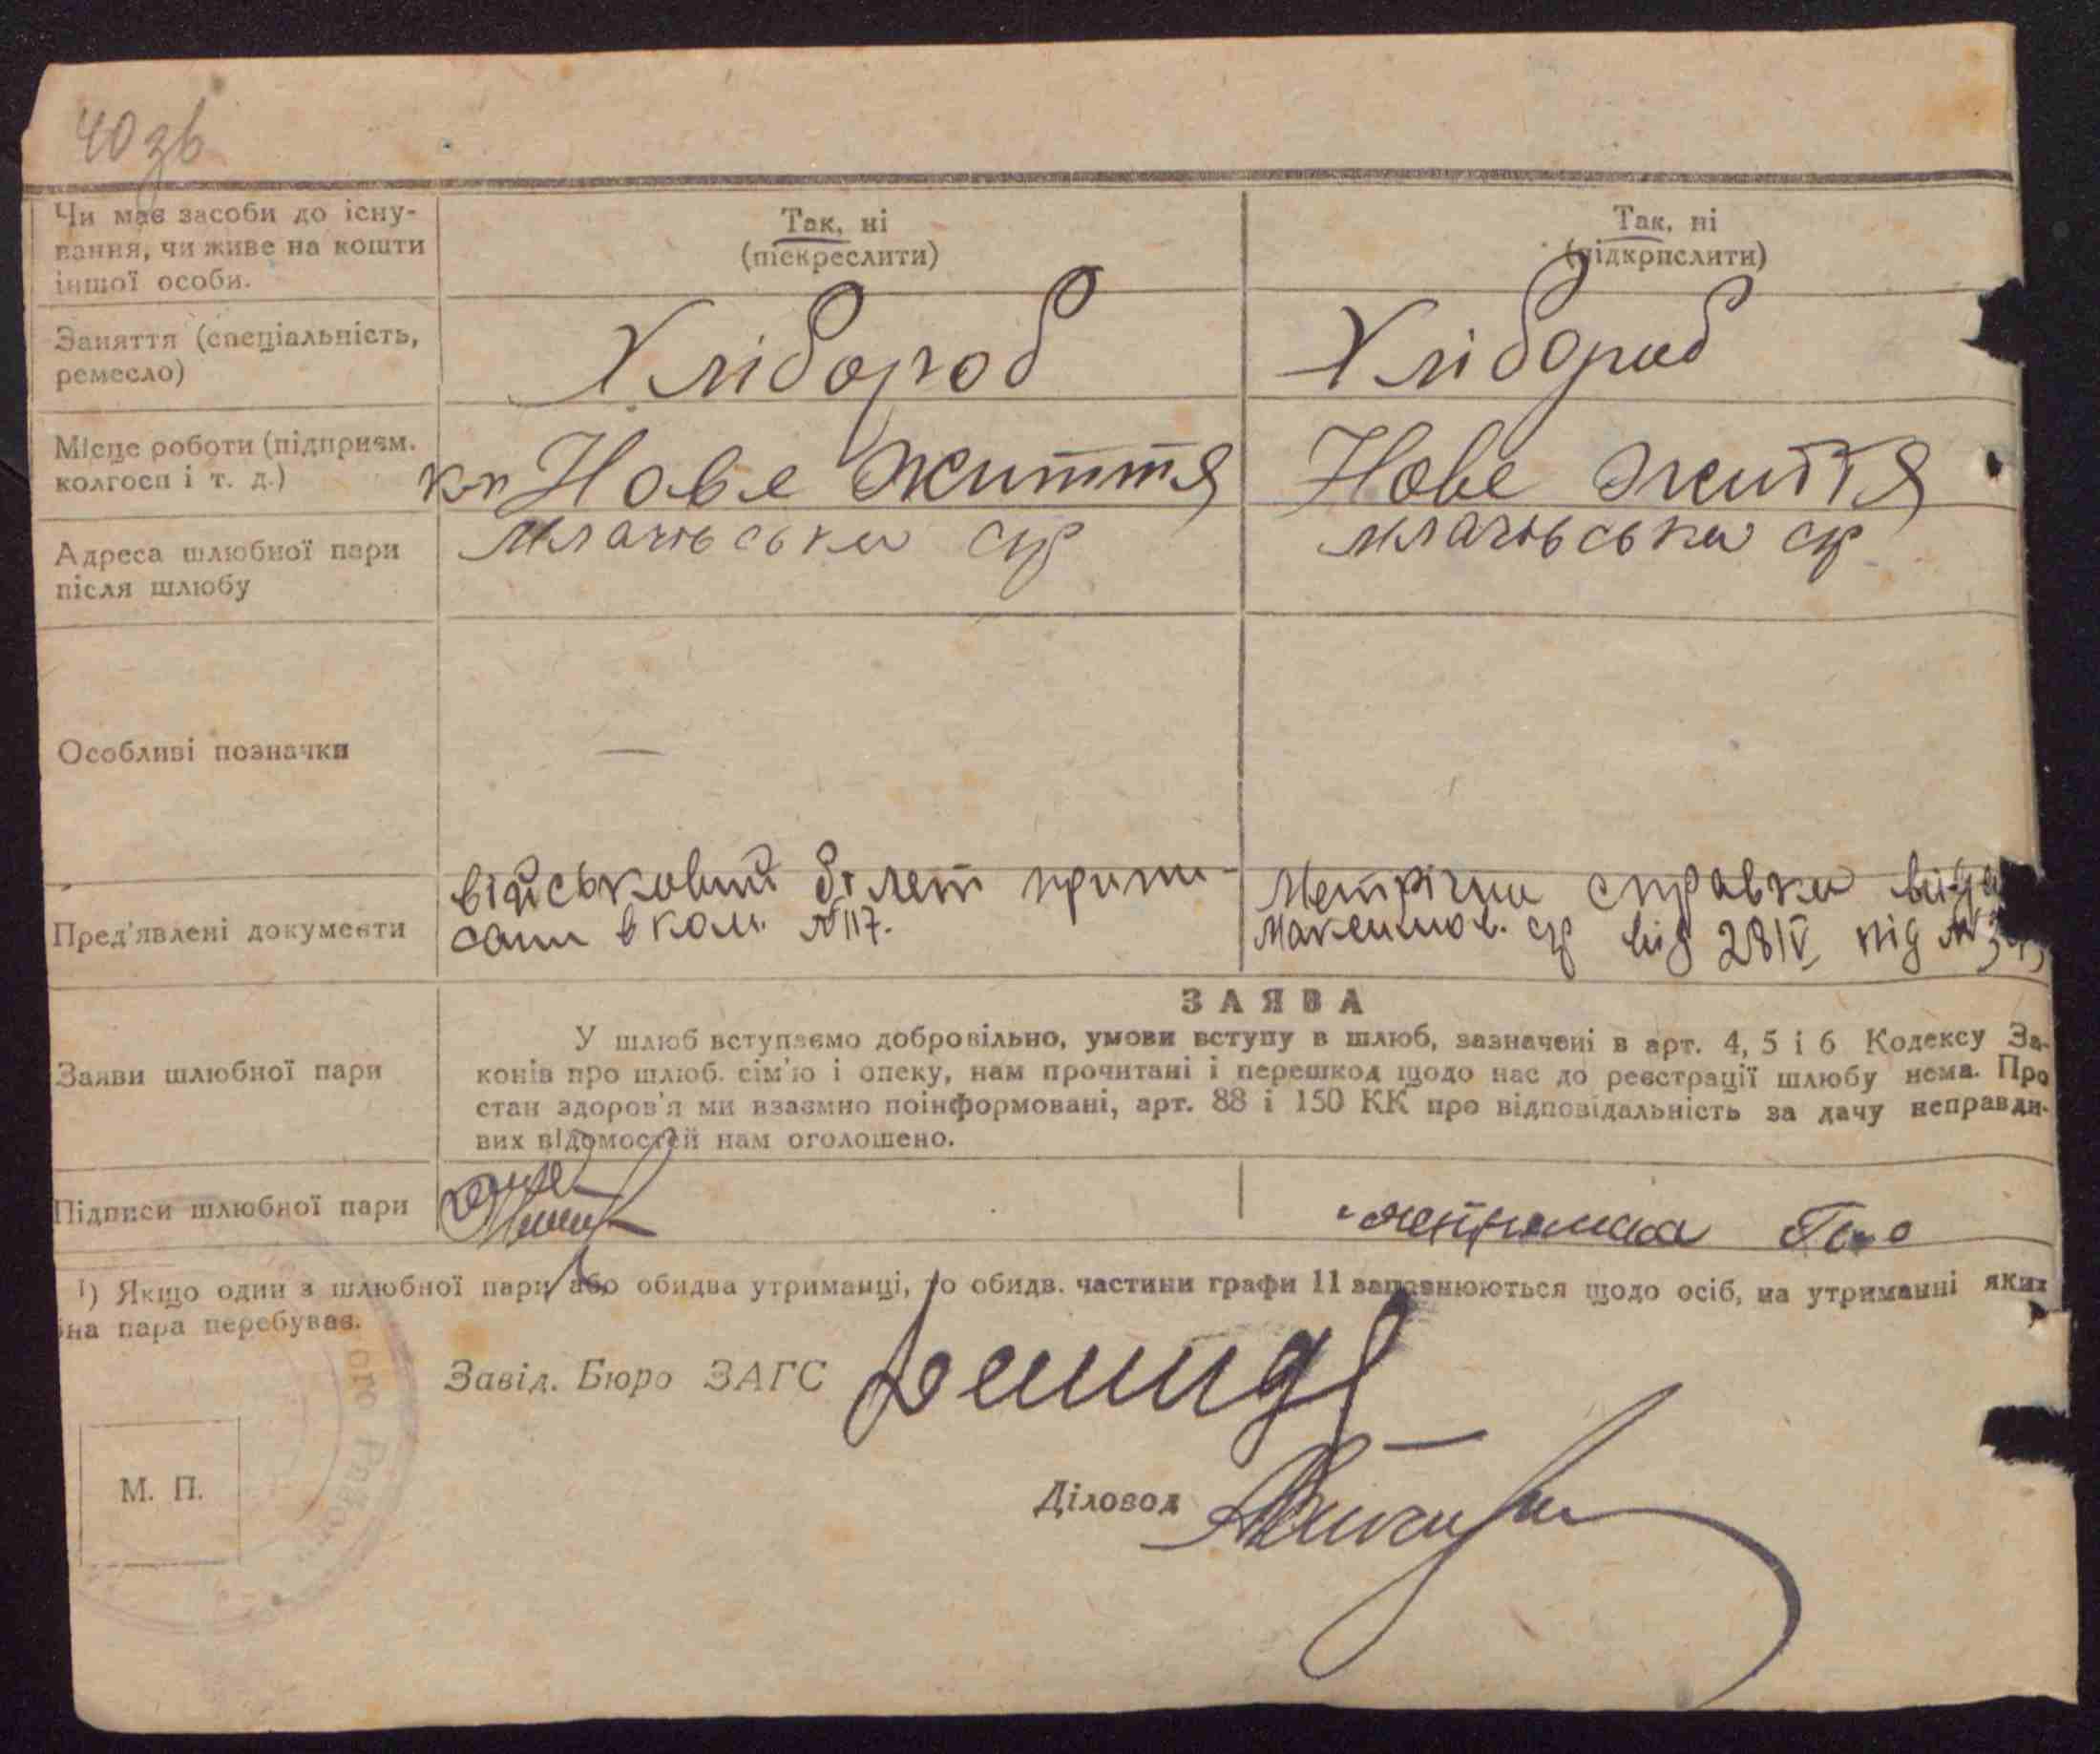 40 зв
Чи має засоби до існу-
вання, чи живе на кошти
іншої особи.
Так, ні
(піскреслити)
Так, ні
(підкрислити)
Заняття (спеціальність,
ремесло)
Хлібороб
Хлібороб
Місце роботи (підприєм.
колгосп і т. д.)
Нове життя
Нове життя
Адреса шлюбної пари
після шлюбу
Млачівська ср
Млачівська ср
Особливі позначки
—
Пред'явлені документи
військовий білет припи-
сани в ком. №117.
Метрічна справка
Максимов. ср від 28 IV під №
Заяви шлюбної пари
ЗАЯВА
У шлюб вступаємо добровільно, умови вступу в шлюб, зазначені в арт. 4, 5 і 6 Кодексу За-
конів про шлюб. сім'ю і опеку, нам прочитані і перешкод щодо нас до реєстрації шлюбу нема. Про
стан здоров'я ми взаємно поінформовані, арт. 88 і 150 КК про відповідальність за дачу неправди-
вих відомостей нам оголошено.
Підписи шлюбної пари
1) Якщо один з шлюбної пари або обидва утриманці, то обидв. частини графи 11 заповнюються щодо осіб, на утриманні яких
на пара перебуває.
Завід. Бюро ЗАГС
Діловод
М. П.